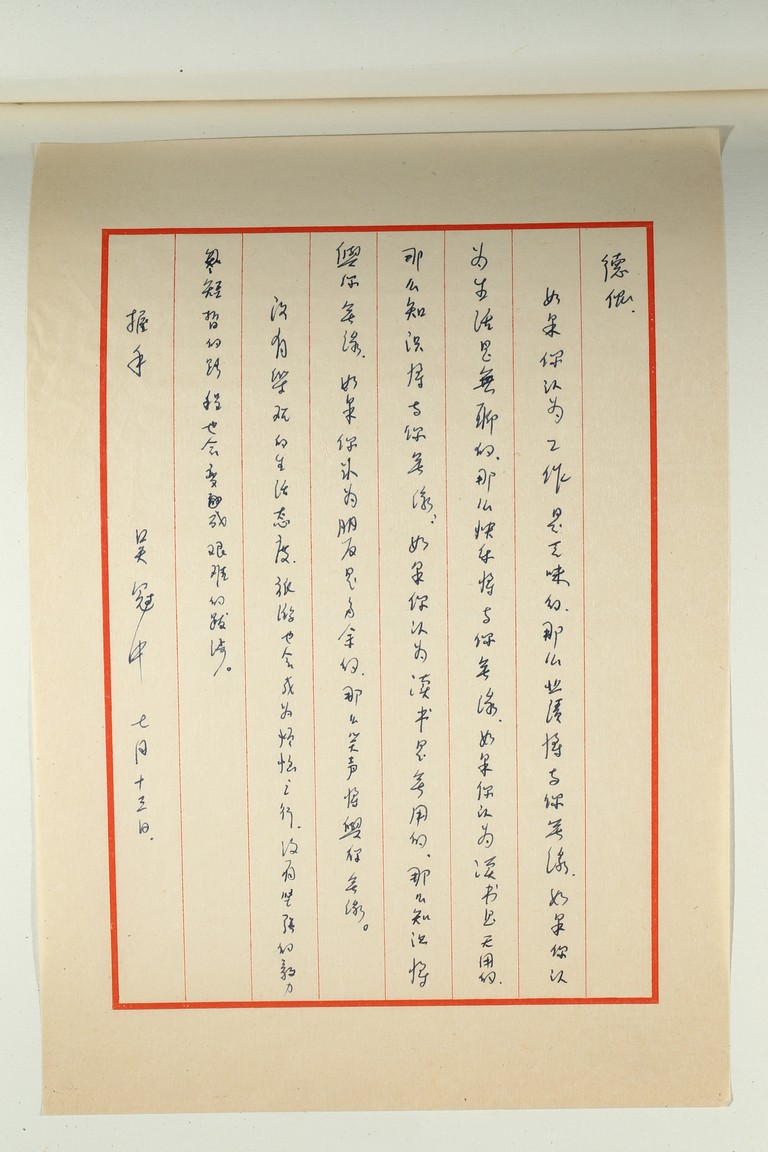 德
如果你认为工作是乏味的.那么业绩将与你無缘.如果你认
为生活是無聊的.那么快乐将与你無缘.如果你认为读书是无用的.
那么知识将与你無缘.如果你认为读书是無用的.那么知识将
與你無缘.如果你认为朋友是多余的.那么笑声将與你無缘。
没有樂观的生活态度.旅游也会成为烦恼之行.没有坚强的毅力
短暂的路程也会变成艰难的跋涉。
握手
吴冠中 七月十三日.